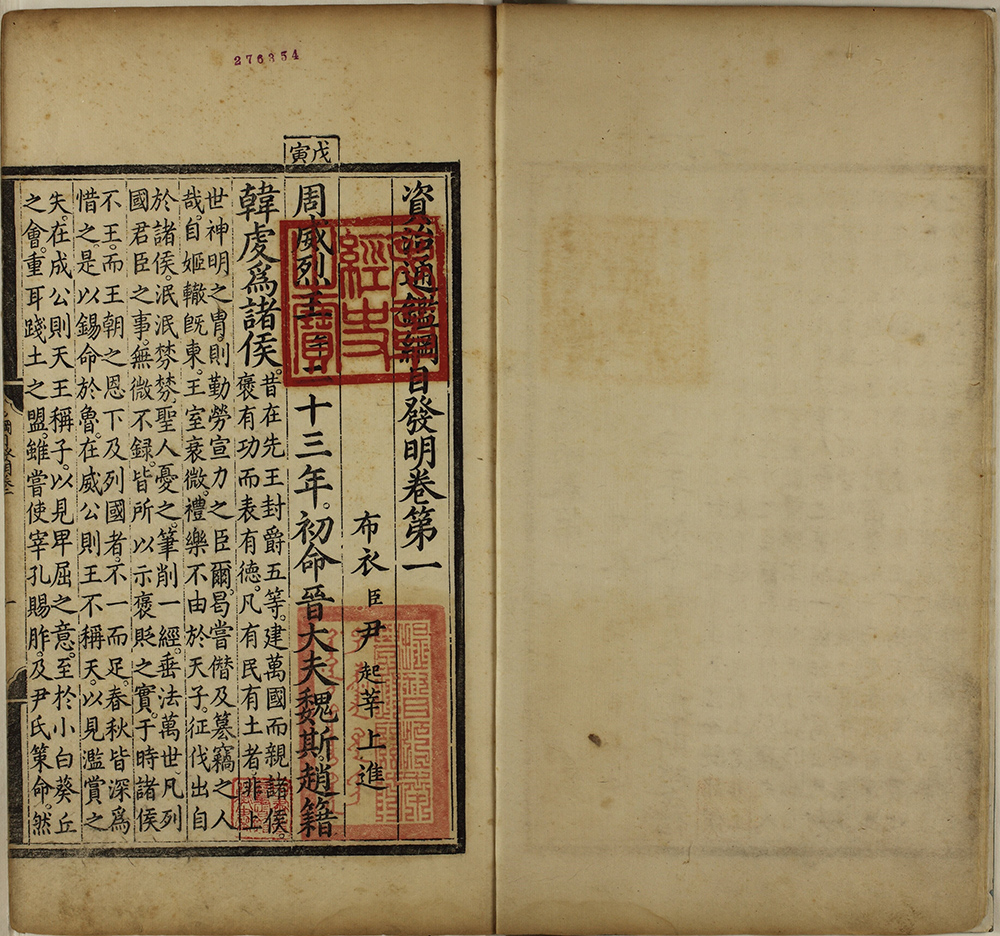 276354
戊寅
資治通鑑綱目發明卷第一
布衣臣尹起莘上進
周威烈王二十三年。初命晉大夫魏斯趙籍
韓虔爲諸侯。
昔在先王封爵五等。建萬國而親諸侯。
褒有功而表有德。凡有民有土者。非上
世神明之胄。則勤勞宣力之臣爾。曷嘗僭及簒竊之人
哉。自姬轍旣東。王室衰微。禮樂不由於天子。征伐出自
於諸侯。泯泯棼棼。聖人憂之。筆削一經。垂法萬世。凡列
國君臣之事。無微不録。皆所以示褒貶之實。于時諸侯
不王。而王朝之恩下及列國者。不一而足。春秋皆深爲
惜之。是以錫命於魯。在威公則王不稱天。以見濫賞之
失。在成公則天王稱子。以見卑屈之意。至於小白葵丘
之會。重耳踐土之盟。雖嘗使宰孔賜胙。及尹氏策命。然
經史